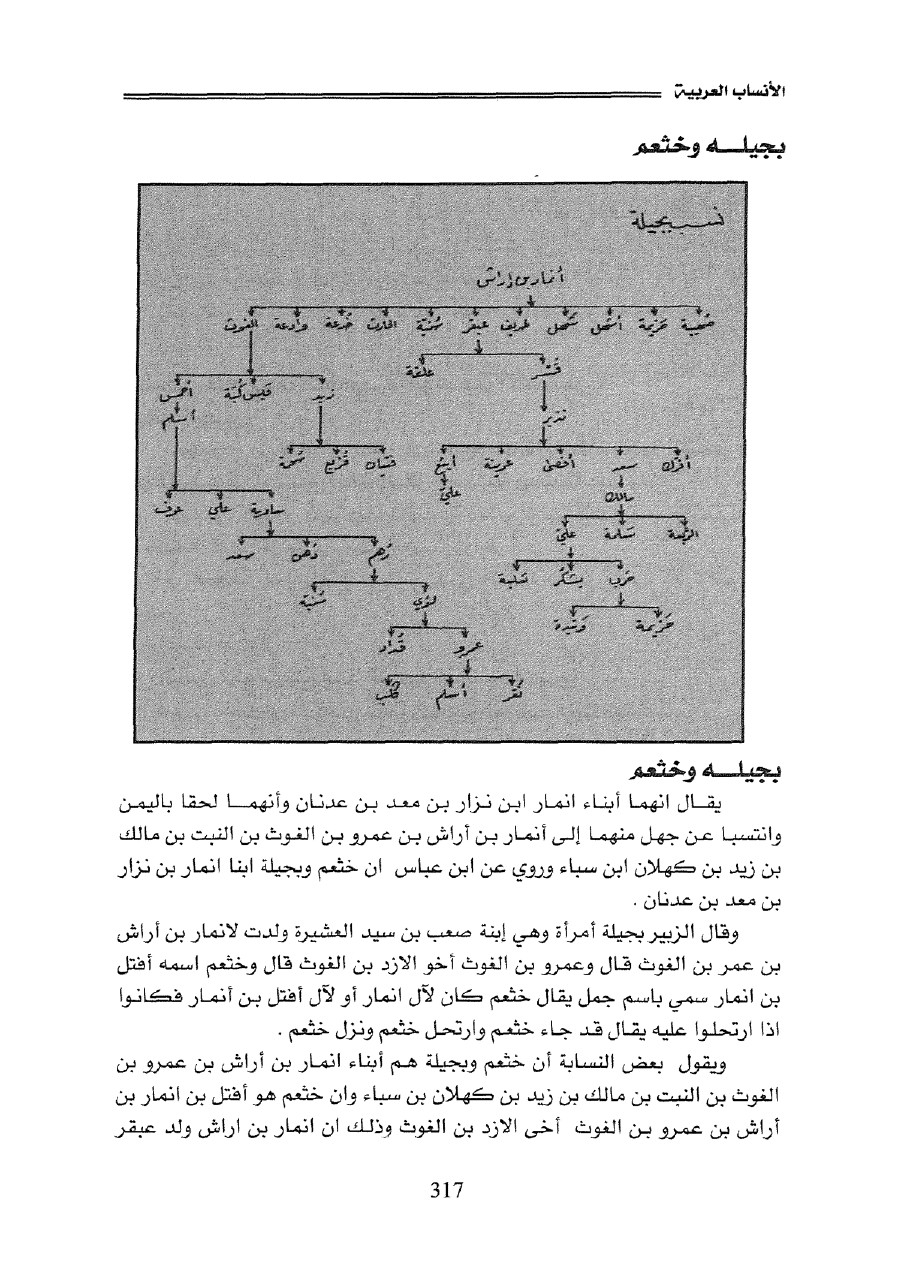 الأنساب العربية
بجيلـــه وخثعم
نسب بجيلة
أنمار بن إراش
صُهيبة خزيمة أشهل شهل طريف عبقر سُنيّة الحارث خُدعة وادعة الغوث
قَسْر علقة
زيد قيس كُبّة أحمس
نذير
أسلم
أفرك سعد أخصى عرينة أيثع
فتيان قُريع سَحمة
مالك
عليّ
معاوية علي عوف
سَلمة عليّ
رُهم دُهن سعد
حرب يشكُر ثعلبة
لؤي سُنيّة
خَزيمة
عمرو قُداد
نُفر أسلم كلب
بجيلـــه وخثعم
يقــال انهمـا أبنـاء انمـار ابـن نـزار بـن معـد بـن عدنـان وأنهمــا لحقـا باليمـن
وانتسبـا عـن جهـل منهمـا إلـى أنمـار بـن أراش بـن عمـرو بـن الغـوث بن النبت بن مالك
بن زيد بن كهلان ابن سباء وروي عن ابن عباس ان خثعم وبجيلة ابنا انمار بن نزار
بن معـد بن عدنان .
وقال الزبير بجيلة أمـرأة وهـي إبنة صعب بن سيد العشيرة ولدت لانمار بن أراش
بن عمـر بن الغوث قـال وعمرو بن الغوث أخو الازد بن الغوث قال وخثعم اسمه أفتل
بن انمار سمي باسم جمل يقال خثعم كان لآل انمار أو لآل أفتل بن أنمـار فكانـوا
اذا ارتحلـوا عليه يقـال قـد جـاء خثعـم وارتحـل خثعم ونـزل خثعم .
ويقول بعض النسابة أن خثعم وبجيلة هـم أبناء انمـار بن أراش بن عمرو بن
الغوث بن النبت بن مالك بن زيد بن كهلان بن سباء وان خثعم هو أفتل بن انمار بن
أراش بن عمـرو بـن الغوث أخـى الازد بن الغوث وذلـك ان انمار بن اراش ولد عبقر
317